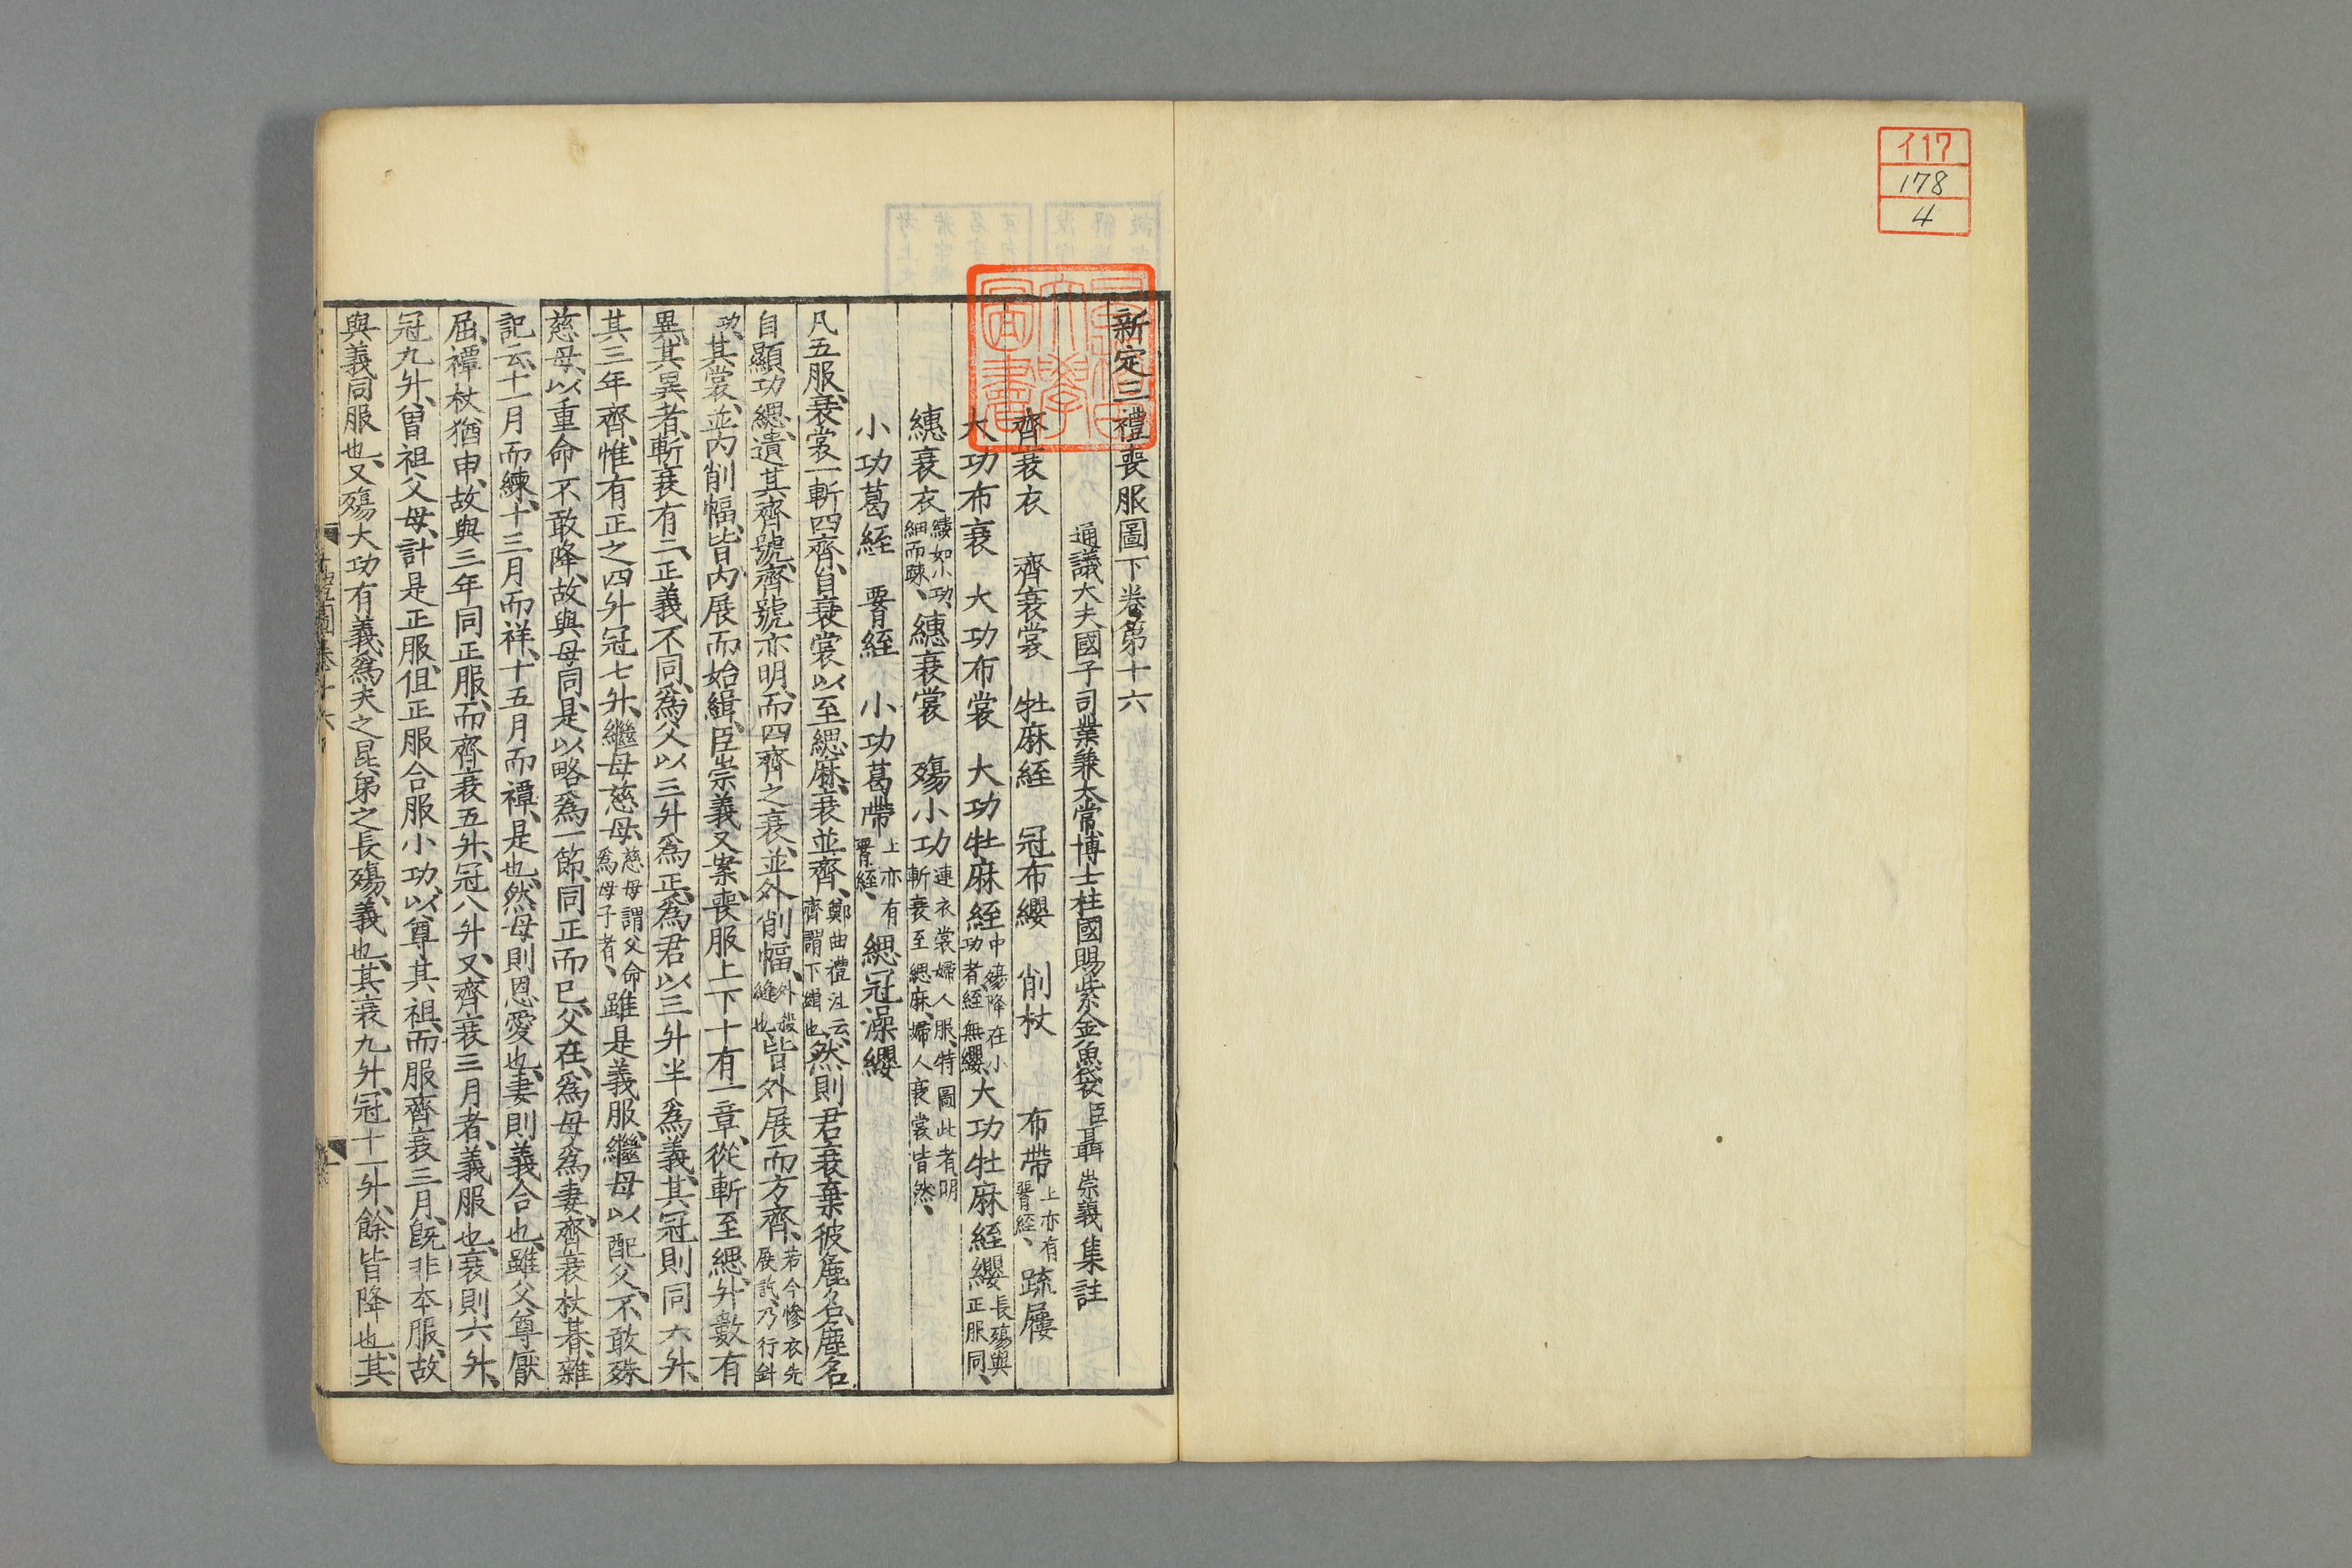 117
178
4
新定三禮喪服圖下卷第十六
通議大夫國子司業兼太常博士柱國賜紫金魚袋臣聶崇義集註
齊衰衣 齊衰裳 牡麻絰 冠布纓 削杖 布帶上亦有要絰、疏屨
大功布衰 大功布裳 大功牡麻絰中殤降在小功者絰無纓、大功牡麻絰纓長殤與正服同、
繐衰衣縷如小功、細而疎、繐衰裳 殤小功連衣裳婦人服、特圖此者、明斬衰至緦麻、婦人衰裳皆然、
小功葛絰 要絰 小功葛帶上亦有要絰、緦冠澡纓
凡五服、衰裳一斬四齊、自衰裳以至緦麻、衰並齊、鄭曲禮注云、齊謂下緝也、然則君衰棄彼麁名、麁名
自顯功緦、遺其齊號、齊號亦明、而四齊之衰、並外削幅、外殺縫也、皆外展而方齊、若今慘衣先展訖、乃行針
功、其裳、並內削幅、皆內展而始緝、臣崇義又案、喪服上下十有一章、從斬至緦、升數有
異、其異者、斬衰有二、正義不同、爲父以三升爲正、爲君以三升半爲義、其冠則同六升、
其三年齊、惟有正之四升冠七升、繼母慈母、慈母謂父命爲母子者、雖是義服、繼母以配父、不敢殊
慈母、以重命不敢降、故與母同、是以略爲一節、同正而已、父在、爲母爲妻、齊衰杖朞、雜
記云、十一月而練、十三月而祥、十五月而禫、是也、然母則恩愛也、妻則義合也、雖父尊厭
屈、禫杖猶申、故與三年同正服、而齊衰五升、冠八升、又齊衰三月者、義服也、衰則六升、
冠九升、曾祖父母、計是正服、但正服合服小功、以尊其祖、而服齊衰三月、旣非本服、故
與義同服也、又殤大功有義、爲夫之昆弟之長殤、義也、其衰九升、冠十一升、餘皆降也、其